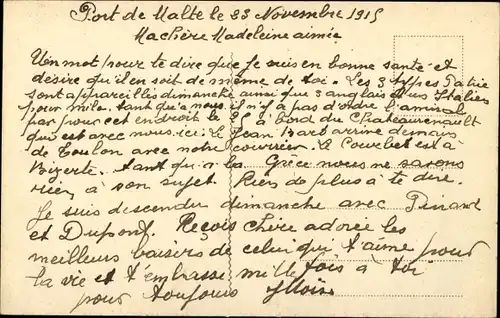 Port de Malte le 23 Novembre 1915
Ma chère Madeleine aimée
Un mot pour te dire que je suis en bonne santé et
désire qu'il en soit de même de toi. Les 3 types Patrie
sont appareillés dimanche ainsi que 3 anglais et les Italiens
pour Milo. tant qu'à nous il n'y a pas d'ordre l'amiral
par pour cet endroit le 25 à bord du Chateaurenault
qui est avec nous ici. Le Jean Bart arrive demain
de Toulon avec notre courrier. Le Courbet est à
Bizerte. tant qu'à la Grèce nous ne savons
rien à son sujet. Rien de plus à te dire.
Je suis descendu dimanche avec Pinard
et Dupont. Reçois chère adorée les
meilleurs baisers de celui qui t'aime pour
la vie et t'embrasse mille fois à toi
pour toujours